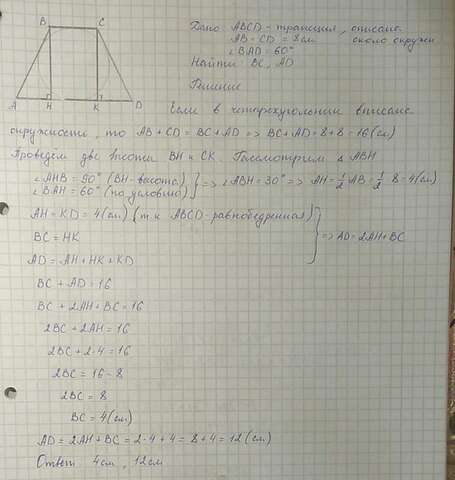 B C
A H K D
Дано: ABCD - трапеция, описанс.
AB = CD = 8см около окружн
∠BAD = 60°
Найти: BC, AD
Решение
Если в четырехугольник вписанс.
окружность, то AB + CD = BC + AD => BC + AD = 8 + 8 = 16(см)
Проведём две высоты BH и CK. Рассмотрим Δ ABH
∠AHB = 90° (BH - высота)
∠BAH = 60° (по условию) } => ∠ABH = 30° => AH = 1/2 AB = 1/2 · 8 = 4(см)
AH = KD = 4(см) (т к ABCD - равнобедренная)
BC = HK } => AD = 2AH + BC
AD = AH + HK + KD
BC + AD = 16
BC + 2AH + BC = 16
2BC + 2AH = 16
2BC + 2·4 = 16
2BC = 16 - 8
2BC = 8
BC = 4(см)
AD = 2AH + BC = 2·4 + 4 = 8 + 4 = 12(см)
Ответ: 4см, 12см